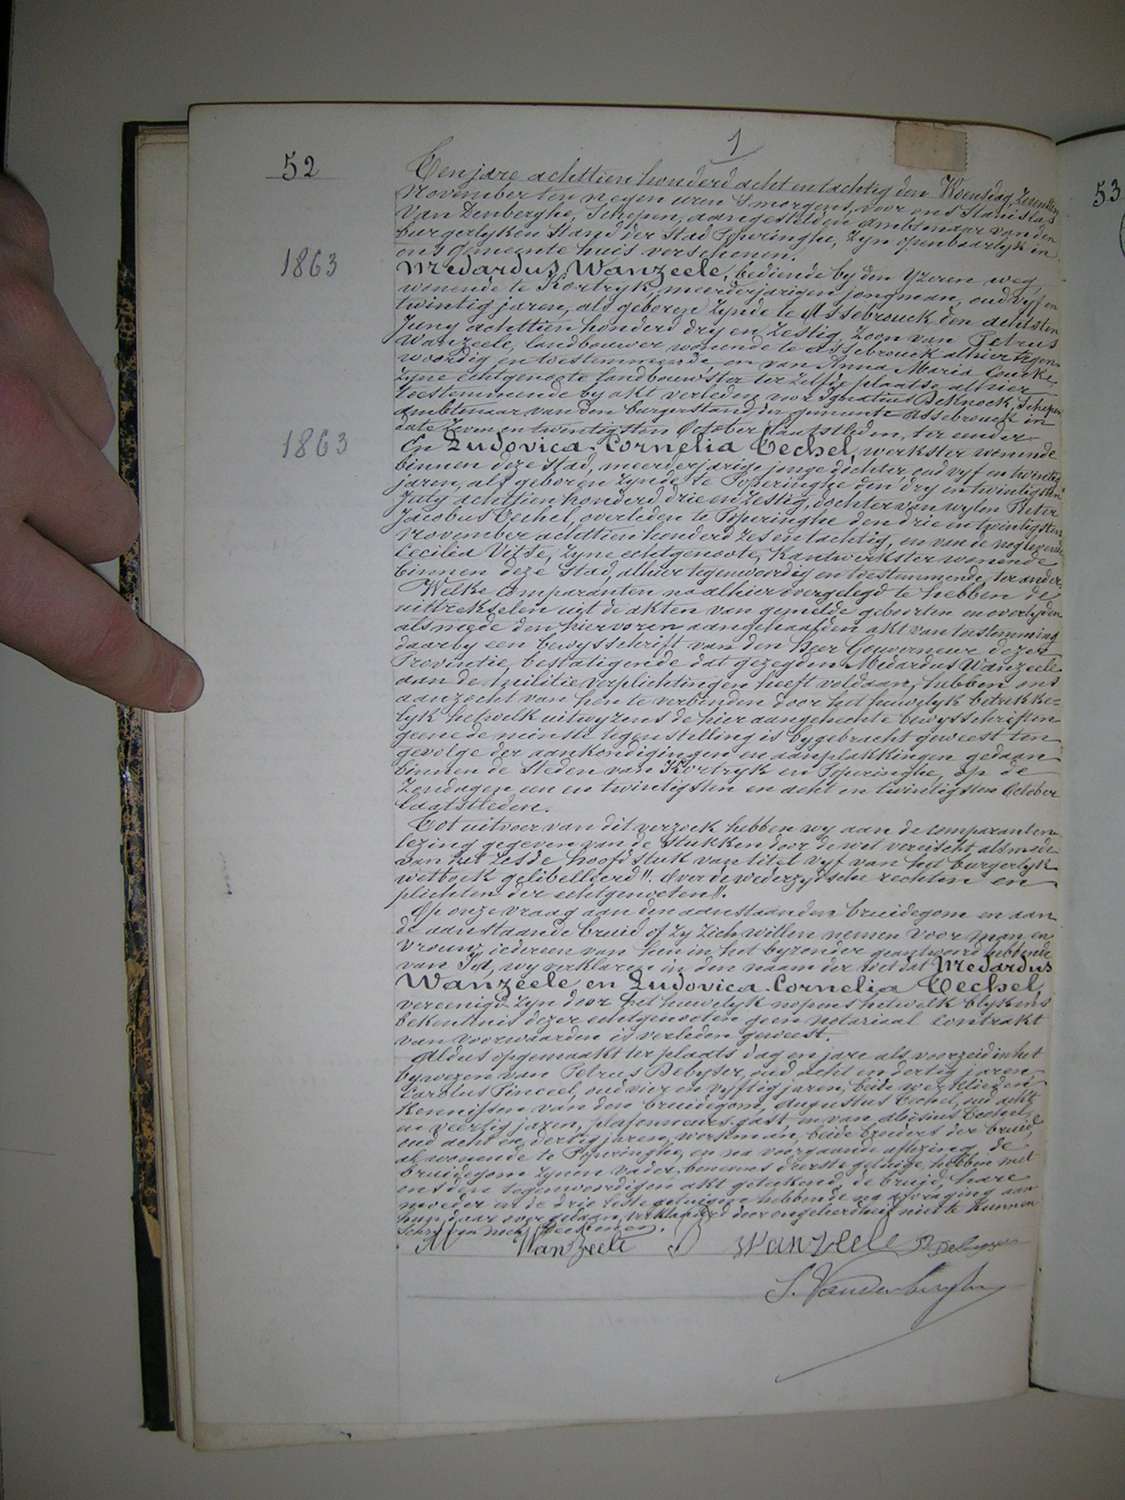 1
52
Ten jare achttien honderd acht en tachtig den Woensdag, zevensten
November ten negen uren 's morgens, voor ons Stanislas
Van Denberghe, Schepen, aangestelden ambtenaar van den
burgerlyken Stand der Stad Poperinghe, zyn openbaarlyk in
ons gemeente huis verschenen.
1863
Medardus Wanzeele, bediende by den Yzeren weg,
wonende te Kortryk, meerderjarigen jongman, oud vyf en
twintig jaren, als geboren zynde te Assebrouck den achtsten
Juny achttien honderd dry en zestig, zoon van Petrus
Wanzeele, landbouwer, wonende te Assebrouck alhier tegen-
woordig en toestemmende, en van Anna Maria
zyne echtgenoote landbouwster ter zelfde plaatse alhier
toestemmende by akt verleden voor Ignatius DeKnock, Schepen
ambtenaar van den burgerstand der gemeente Assebrouck in
date zeven en twintigsten October laatstleden, ter eender
1863
En Ludovica-Cornelia Techel, werkster wonende
binnen deze stad, meerderjarige jonge dochter, oud vyf en twintig
jaren, als geboren zynde te Poperinghe den dry en twintigsten
July achttien honderd drie en zestig, dochter van wylen Pieter
Jacobus Techel, overleden te Poperinghe den drie en twintigsten
November achttien honderd zes en tachtig, en van de nog levende
Cecilia Vitse, zyne echtgenoote, Kantwerkster wonende
binnen deze Stad, alhier tegenwoordig en toestemmende, ter ander.
Welke Comparanten na alhier overgelegd te hebben de
uittrekselen uit de akten van gemelde geboorten en overlyden
alsmede den hiervoren aangehaalden akt van toestemming
daarby een bewysschrift van den Heer Gouverneur dezer
Provintie, bestatigende dat gezegden Medardus Wanzeele
aan de militie verplichtingen heeft voldaan, hebben ons
aanzocht van hen te verbinden door het huwelyk betrekke-
lyk hetwelk uitwyzens de hier aangehechte bewysschriften
geene de minste tegenstelling is bygebracht geweest ten
gevolge der aankondigingen en aanplakkingen gedaan
binnen de Steden van Kortryk en Poperinghe, op de
Zondagen een en twintigsten en acht en twintigsten October
laatstleden.
Tot uitvoer van dit verzoek hebben wy aan de comparanten
lezing gegeven van de stukken door de wet vereischt, alsmede
van het zesde hoofdstuk van titel vyf van het burgerlyk
wetboek gelibelleerd "Over de wederzydsche rechten en
plichten der echtgenooten".
Op onze vraag aan den aanstaanden bruidegom en aan
de aanstaande bruid of zy zich willen nemen voor man en
vrouw, iedereen van hen in het byzonder geantwoord hebbende
van Ja, wy verklaren in den naam der wet dat Medardus
Wanzeele en Ludovica-Cornelia Techel,
vereenigd zyn door het huwelyk nopens hetwelk blykens
bekentenis dezer echtgenooten geen notariaal contrakt
van voorwaarden is verleden geweest.
Aldus opgemaakt ter plaats dag en jare als voorzeid in het
bywezen van Petrus Debyser, oud acht en dertig jaren,
Carolus Pinceel, oud vier en vyftig jaren, beide werklieden
Kennissen van den bruidegom, Augustus Techel, oud acht
en veertig jaren, plafonneurs gast en van Aloisius Techel
oud acht en dertig jaren, werkman, beide broeders der bruid,
al wonende te Poperinghe, en na voorgaande aflezing de
bruidegom zynen vader benevens d'eerste getuige hebben met
ons den tegenwoordigen akt geteekend, de bruid, hare
moeder en de drie leste getuigen hebbende na afvraging aan
hun daar over gedaan, verklaard door ongeleerdheid niet te kunnen
schryven noch teekenen.
M Wanzeele P Wanzeele P. Debyser
S. Vandenberghe
53